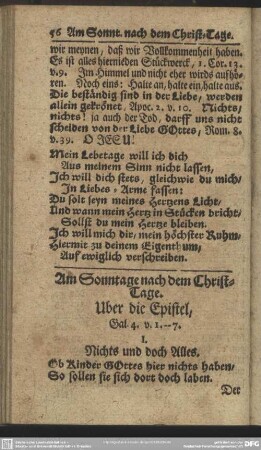 56 Am Sonnt. nach dem Christ-Tage.
wir meynen, daß wir Vollkommenheit haben.
Es ist alles hiernieden Stückwerck, 1. Cor. 13.
v. 9. Im Himmel und nicht eher wirds aufhö-
ren. Noch eins: Halte an, halte ein, halte aus.
Die beständig sind in der Liebe, werden
allein gekrönet. Apoc. 2. v. 10. Nichts,
nichts! ja auch der Tod, darff uns nicht
scheiden von der Liebe GOttes, Rom. 8.
v. 39. O JEsu!
Mein Lebetage will ich dich
Aus meinem Sinn nicht lassen,
Jch will dich stets, gleichwie du mich,
Jn Liebes-Arme fassen:
Du solt seyn meines Hertzens Licht,
Und wann mein Hertz in Stücken bricht,
Sollst du mein Hertze bleiben.
Jch will mich dir, mein höchster Ruhm,
Hiermit zu deinem Eigenthum,
Auf ewiglich verschreiben.
Am Sonntage nach dem Christ-
Tage.
Uber die Epistel,
Gal. 4. v. 1.--7.
I.
Nichts und doch Alles.
Ob Kinder GOttes hier nichts haben,
So sollen sie sich dort doch laben.
Der